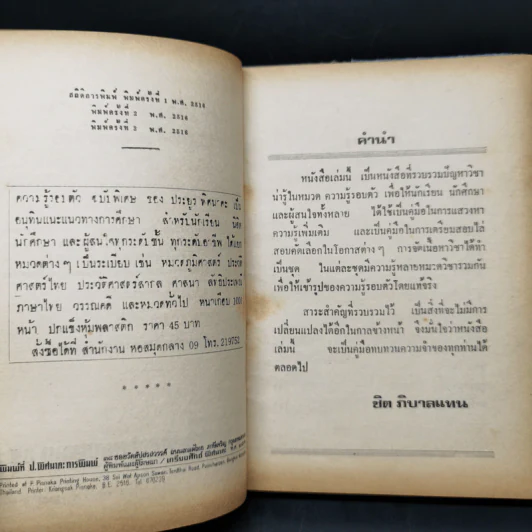 สถิติการพิมพ์ พิมพ์ครั้งที่ 1 พ.ศ. 2516
พิมพ์ครั้งที่ 2 พ.ศ. 2516
พิมพ์ครั้งที่ 2 พ.ศ. 2516
ความรู้รอบตัว ฉบับพิเศษ ของ ประยูร พิศนาคะ เป็น
อนุทินแนะแนวทางการศึกษา สำหรับนักเรียน นิสิต
นักศึกษา และผู้สนใจทุกระดับชั้น ทุกระดับอาชีพ ได้แยก
หมวดต่างๆ เป็นระเบียบ เช่น หมวดภูมิศาสตร์ ประวัติ
ศาสตร์ไทย ประวัติศาสตร์สากล ศาสนา ลัทธิประเพณี
ภาษาไทย วรรณคดี และหมวดทั่วไป หนาเกือบ
หน้า ปกแข็งหุ้มพลาสติก ราคา 45 บาท
สั่งซื้อได้ที่ สำนักงาน หอสมุดกลาง 09 โทร. 219752
*****
พิมพ์ที่ ป.พิศนาคะการพิมพ์
Printed at P. Pisnaka Printing House,
Thailand. Printer
คำนำ
หนังสือเล่มนี้ เป็นหนังสือที่รวบรวมปัญหาวิชา
น่ารู้ในหมวด ความรู้รอบตัว เพื่อให้นักเรียน นักศึกษา
และผู้สนใจทั้งหลาย ได้ใช้เป็นคู่มือในการแสวงหา
ความรู้เพิ่มเติม และเป็นคู่มือในการเตรียมสอบไล่
สอบคัดเลือกในโอกาสต่าง ๆ การจัดเนื้อหาวิชาได้ทำ
เป็นชุด ในแต่ละชุดมีความรู้หลายหมวดวิชารวมกัน
เพื่อให้เข้ารูปของความรู้รอบตัวโดยแท้จริง
สาระสำคัญที่รวบรวมไว้ เป็นสิ่งที่จะไม่มีการ
เปลี่ยนแปลงได้อีกในกาลข้างหน้า จึงมั่นใจว่าหนังสือ
เล่มนี้ จะเป็นคู่มือทบทวนความจำของทุกท่านได้
ตลอดไป
ชิต ภิบาลแทน